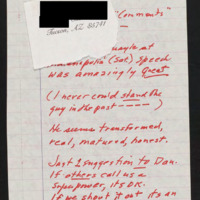 "Comments"
Tucson, AZ 85741
Quayle at
(Sat) Speech
was amazingly Great
(I never could stand the
guy in the past -----)
He seems transformed,
real, matured, honest.
Just 1 suggestion to Dan.
If others call us a
Superpower, it's OK.
If we shout out its an